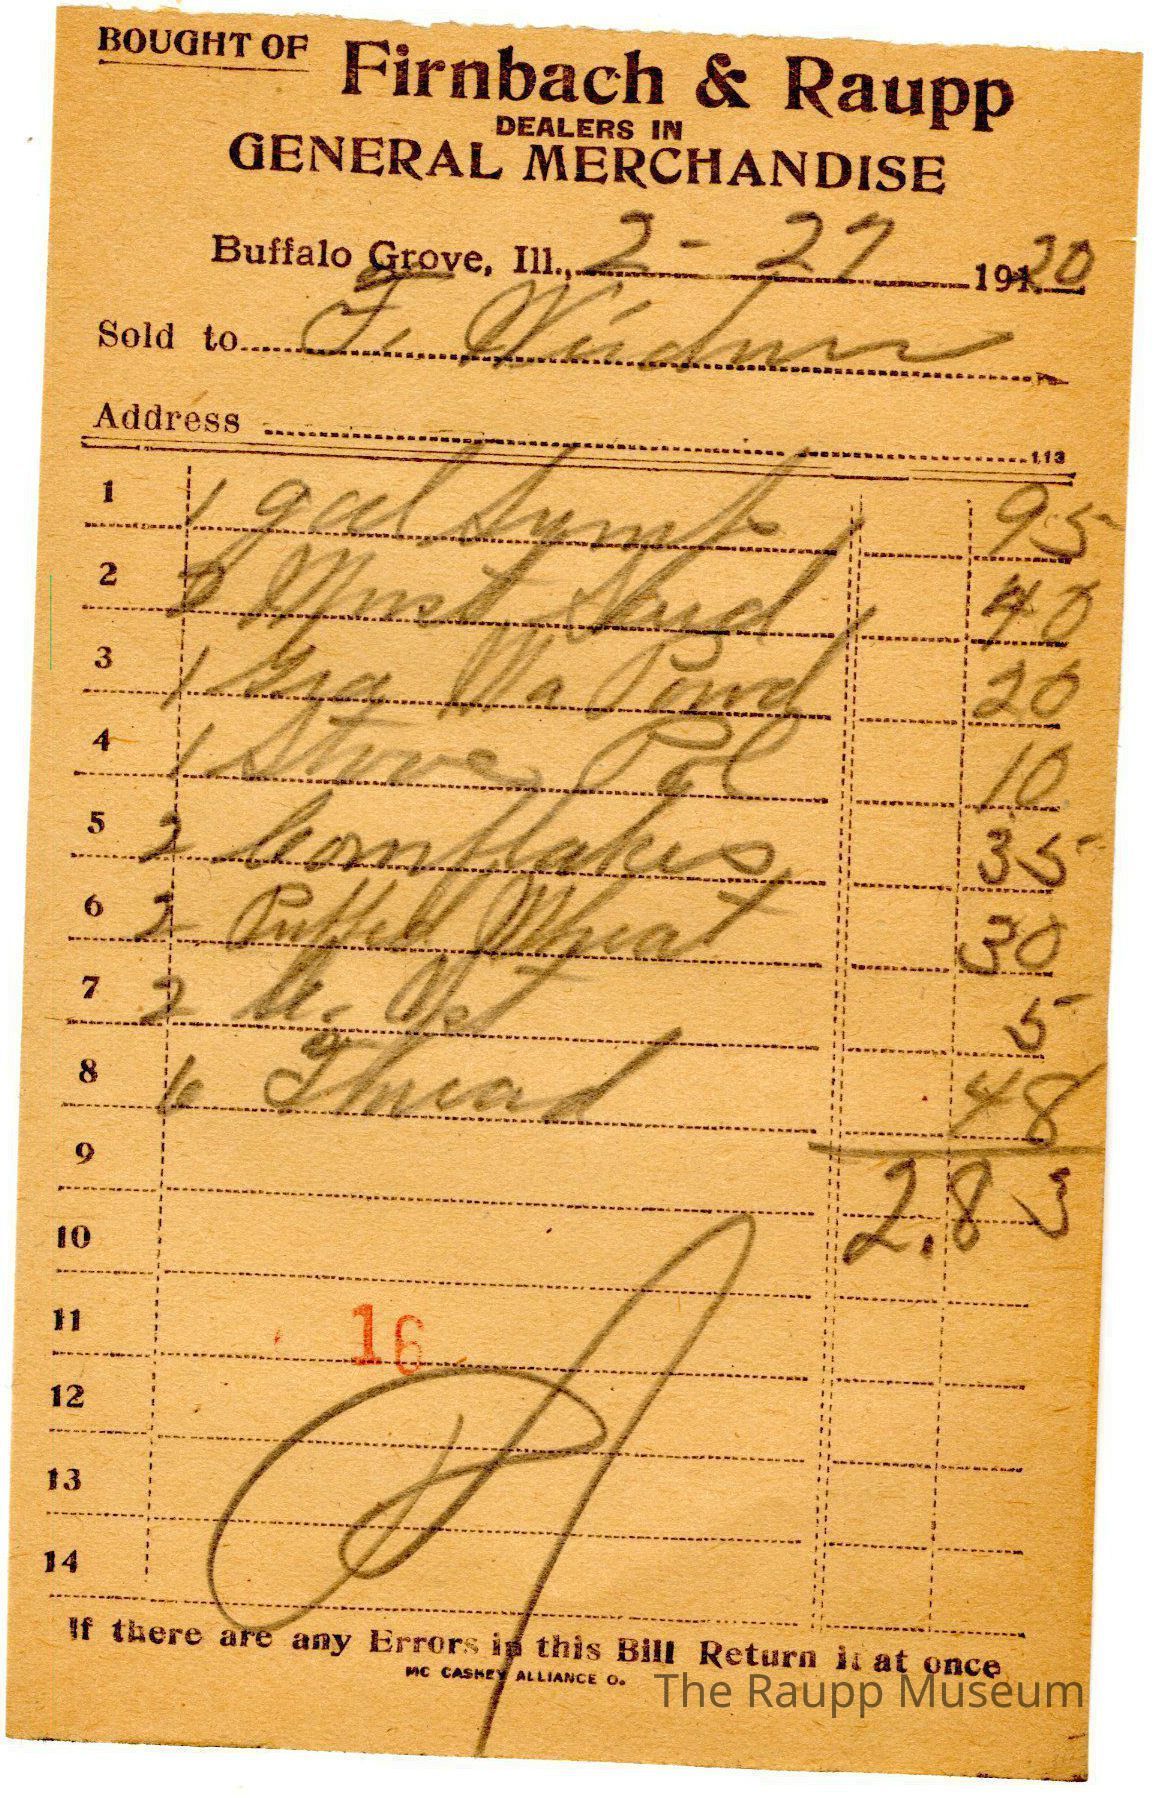 BOUGHT OF Firnbach & Raupp
DEALERS IN
GENERAL MERCHANDISE
Buffalo Grove, Ill., 2-27 1920
Sold to F.
Address
113
1 1 gal 95
2 Must 40
3 1 20
4 1 Stove Pol 10
5 2 Cornflakes 35
6 2 Puffed Wheat 30
7 2 5
8 6 Thread 48
9 2.83
10
11 16
12
13
14
If there are any Errors in this Bill Return it at once
MC CASKEY ALLIANCE O.
The Raupp Museum